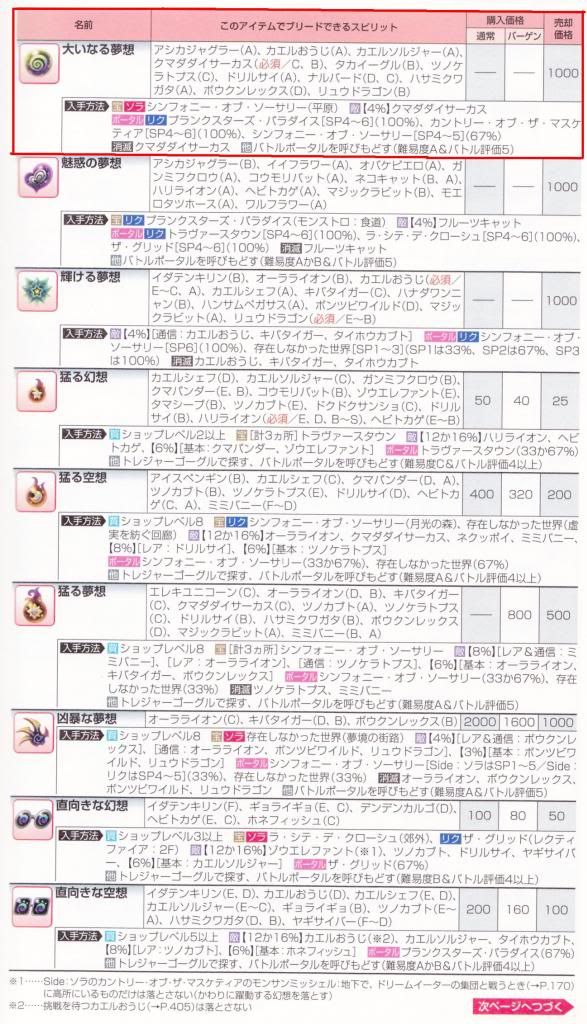 名前 このアイテムでブリードできるスピリット 購入価格 売却価格
通常 バーゲン
大いなる夢想 アシカジャグラー(A)、カエルおうじ(A)、カエルソルジャー(A)、
クマダダイサーカス(必須/C、B)、タカイーグル(B)、ツノケ
ラトプス(C)、ドリルサイ(A)、ナルバード(D、C)、ハサミクワ
ガタ(A)、ボウクンレックス(D)、リュウドラゴン(B)
― ― 1000
入手方法 宝 ソラ シンフォニー・オブ・ソーサリー(平原) 敵【4%】クマダダイサーカス
ポータル リク プランクスターズ・パラダイス[SP4~6](100%)、カントリー・オブ・ザ・マスケ
ティア[SP4~6](100%)、シンフォニー・オブ・ソーサリー[SP4~5](67%)
消滅 クマダダイサーカス 他 バトルポータルを呼びもどす(難易度A&バトル評価5)
魅惑の夢想 アシカジャグラー(B)、イイフラワー(A)、オバケピエロ(A)、ガ
ンミフクロウ(A)、コウモリバット(A)、ネコキャット(B、A)、
ハリライオン(A)、ヘビトカゲ(A)、マジックラビット(B)、モエ
ロタツホース(A)、ワルフラワー(A)
― ― 1000
入手方法 宝 リク プランクスターズ・パラダイス(モンストロ:食道) 敵【4%】フルーツキャット
ポータル リク トラヴァースタウン[SP4~6](100%)、ラ・シテ・デ・クローシュ[SP4~6](100%)、
ザ・グリッド[SP4~6](100%) 消滅 フルーツキャット
他 バトルポータルを呼びもどす(難易度AかB&バトル評価5)
輝ける夢想 イダテンキリン(B)、オーラライオン(B)、カエルおうじ(必須/
E~C、A)、カエルシェフ(A)、キバタイガー(C)、ハナダワンニ
ャン(B)、ハンサムペガサス(A)、ポンツビワイルド(D)、マジッ
クラビット(A)、リュウドラゴン(必須/E~B)
― ― 1000
入手方法 敵【4%】[通信:カエルおうじ、キバタイガー、タイホウカブト] ポータル リク シンフォニー・オブ・
ソーサリー[SP6](100%)、存在しなかった世界[SP1~3](SP1は33%、SP2は67%、SP3
は100%) 消滅 カエルおうじ、キバタイガー、タイホウカブト
猛る幻想 カエルシェフ(D)、カエルソルジャー(C)、ガンミフクロウ(B)、
クマパンダー(E、B)、コウモリバット(B)、ゾウエレファント(E)、
タマシープ(B)、ツノカブト(E)、ドクドクサンショ(C)、ドリル
サイ(B)、ハリライオン(必須/E、D、B~S)、ヘビトカゲ(E~B)
50 40 25
入手方法 買 ショップレベル2以上 宝[計3ヵ所]トラヴァースタウン 敵【12か16%】ハリライオン、ヘビ
トカゲ、【6%】[基本:クマパンダー、ゾウエレファント] ポータル トラヴァースタウン(33か67%)
他 トレジャーゴーグルで探す、バトルポータルを呼びもどす(難易度C&バトル評価4以上)
猛る空想 アイスペンギン(B)、カエルシェフ(C)、クマパンダー(D、A)、
ツノカブト(B)、ツノケラトプス(E)、ドリルサイ(D)、ヘビトカ
ゲ(C、A)、ミミバニー(F~D)
400 320 200
入手方法 買 ショップレベル8 宝 リク シンフォニー・オブ・ソーサリー(月光の森)、存在しなかった世界(虚
実を紡ぐ回廊) 敵【12か16%】オーラライオン、クマダダイサーカス、ネクッポイ、ミミバニー、
【8%】[レア:ドリルサイ]、【6%】[基本:ツノケラトプス]
ポータル シンフォニー・オブ・ソーサリー(33か67%)、存在しなかった世界(67%)
他 トレジャーゴーグルで探す、バトルポータルを呼びもどす(難易度A&バトル評価4以上)
猛る夢想 エレキユニコーン(C)、オーラライオン(D、B)、キバタイガー
(C)、クマダダイサーカス(C)、ツノカブト(A)、ツノケラトプス
(C)、ドリルサイ(B)、ハサミクワガタ(B)、ボウクンレックス
(D)、マジックラビット(A)、ミミバニー(B、A)
― 800 500
入手方法 買 ショップレベル8 宝[計3ヵ所]シンフォニー・オブ・ソーサリー 敵【8%】[レア&通信:ミ
ミバニー]、[レア:オーラライオン]、[通信:ツノケラトプス]、【6%】[基本:オーラライオン、
キバタイガー、ボウクンレックス] ポータル シンフォニー・オブ・ソーサリー(33か67%)、存在
しなかった世界(33%) 消滅 ツノケラトプス、ミミバニー
他 トレジャーゴーグルで探す、バトルポータルを呼びもどす(難易度A&バトル評価5)
凶暴な夢想 オーラライオン(C)、キバタイガー(D、B)、ボウクンレックス(B) 2000 1600 1000
入手方法 買 ショップレベル8 宝 ソラ 存在しなかった世界(夢境の街路) 敵【4%】[レア&通信:ボウクンレ
ックス]、[通信:オーラライオン、ポンツビワイルド、リュウドラゴン]、【3%】[基本:ポンツビワ
イルド、リュウドラゴン] ポータル シンフォニー・オブ・ソーサリー[Side:ソラはSP1~5/Side:
リクはSP4~5](33%)、存在しなかった世界(33%) 消滅 オーラライオン、ボウクンレックス、
ポンツビワイルド、リュウドラゴン 他 バトルポータルを呼びもどす(難易度A&バトル評価5)
直向きな幻想 イダテンキリン(F)、ギョライギョ(E、C)、デンデンカルゴ(D)、
ヘビトカゲ(E、C)、ホネフィッシュ(C)
100 80 50
入手方法 買 ショップレベル3以上 宝 ソラ ラ・シテ・デ・クローシュ(郊外)、リク ザ・グリッド(レクティ
ファイア:2F) 敵【12か16%】ゾウエレファント(※1)、ツノカブト、ドリルサイ、ヤギサイバ
ー、【6%】[基本:カエルソルジャー] ポータル ザ・グリッド(67%)
他 トレジャーゴーグルで探す、バトルポータルを呼びもどす(難易度B&バトル評価4以上)
直向きな空想 イダテンキリン(E、D)、カエルおうじ(D)、カエルシェフ(E、D)、
カエルソルジャー(E~C)、ギョライギョ(B)、ツノカブト(E~
A)、ハサミクワガタ(D、B)、ヤギサイバー(F~D)
200 160 100
入手方法 買 ショップレベル5以上 敵【12か16%】カエルおうじ(※2)、カエルソルジャー、タイホウカブト、
【8%】[レア:ツノカブト]、【6%】[基本:ホネフィッシュ] ポータル プランクスターズ・パラダイス(67%)
他 トレジャーゴーグルで探す、バトルポータルを呼びもどす(難易度AかB&バトル評価4以上)
※1……Side:ソラのカントリー・オブ・ザ・マスケティアのモンサンミッシェル:地下で、ドリームイーターの集団と戦うとき(→P.170)
に高所にいるものだけは落とさない(かわりに躍動する幻想を落とす)
※2……挑戦を待つカエルおうじ(→P.405)は落とさない
次ページへつづく